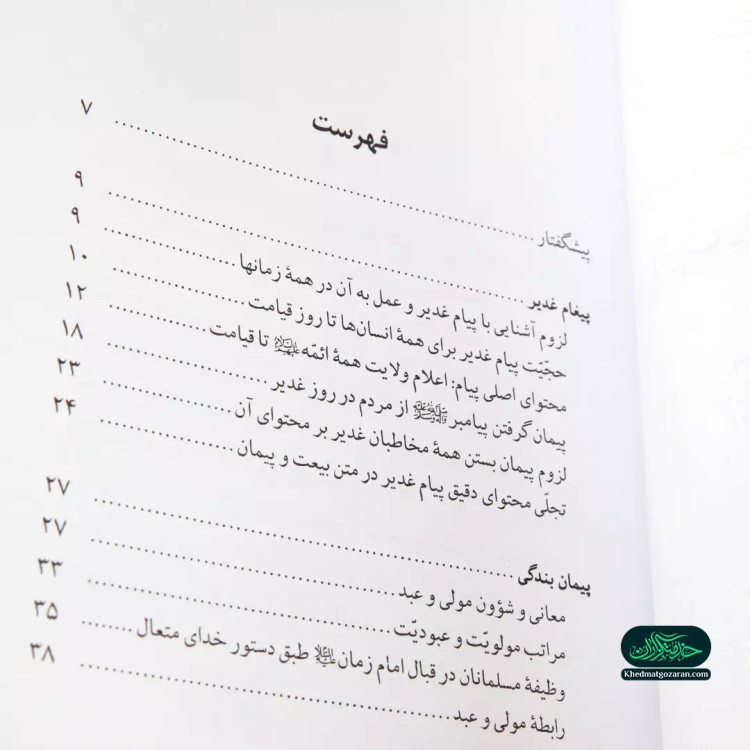 فهرست
پیشگفتار ........ ۷
پیغام غدیر ........ ۹
لزوم آشنایی با پیام غدیر و عمل به آن در همهٔ زمانها ........ ۹
حجّیّت پیام غدیر برای همهٔ انسان‌ها تا روز قیامت ........ ۱۰
محتوای اصلی پیام: اعلام ولایت همهٔ ائمّه علیهم السلام تا قیامت ........ ۱۲
پیمان گرفتن پیامبر صلی الله علیه وآله از مردم در روز غدیر ........ ۱۸
لزوم پیمان بستن همهٔ مخاطبان غدیر بر محتوای آن ........ ۲۳
تجلّی محتوای دقیق پیام غدیر در متن بیعت و پیمان ........ ۲۴
پیمان بندگی ........ ۲۷
معانی و شؤون مولی و عبد ........ ۲۷
مراتب مولویّت و عبودیّت ........ ۳۳
وظیفهٔ مسلمانان در قبال امام زمان علیه السلام طبق دستور خدای متعال ........ ۳۵
رابطهٔ مولی و عبد ........ ۳۸
خدمتگزاران
Khedmatgozaran.com